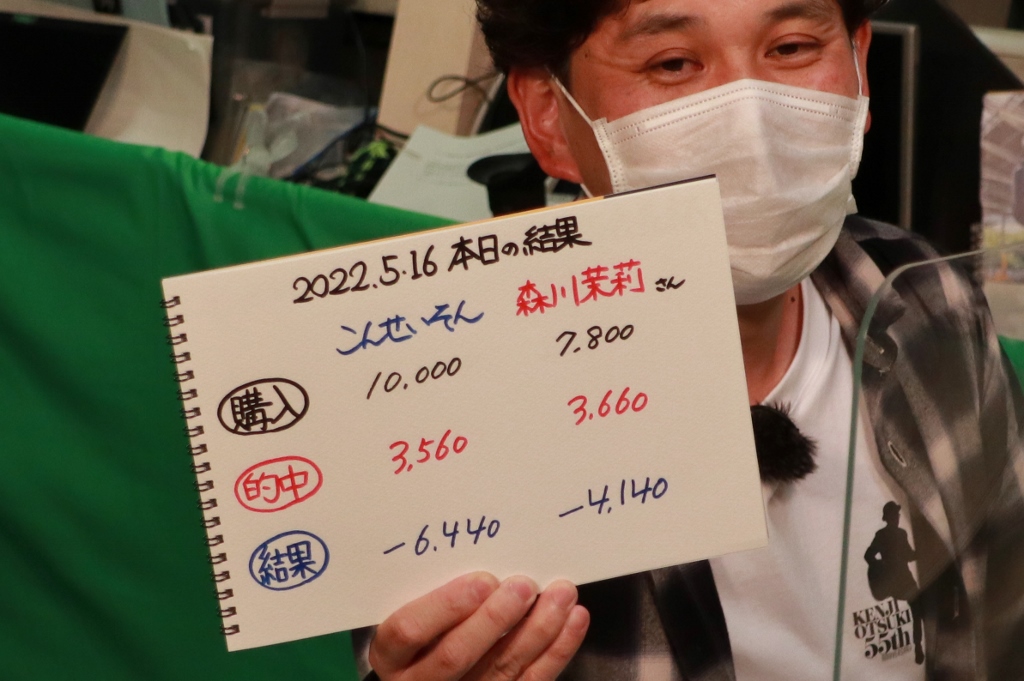 2022.5.16 本日の結果
こんせいそん 森川茉莉さん
購入 10.000 7.800
的中 3.560 3.660
結果 -6.440 -4.140
KENJI
OTSUKI
55th